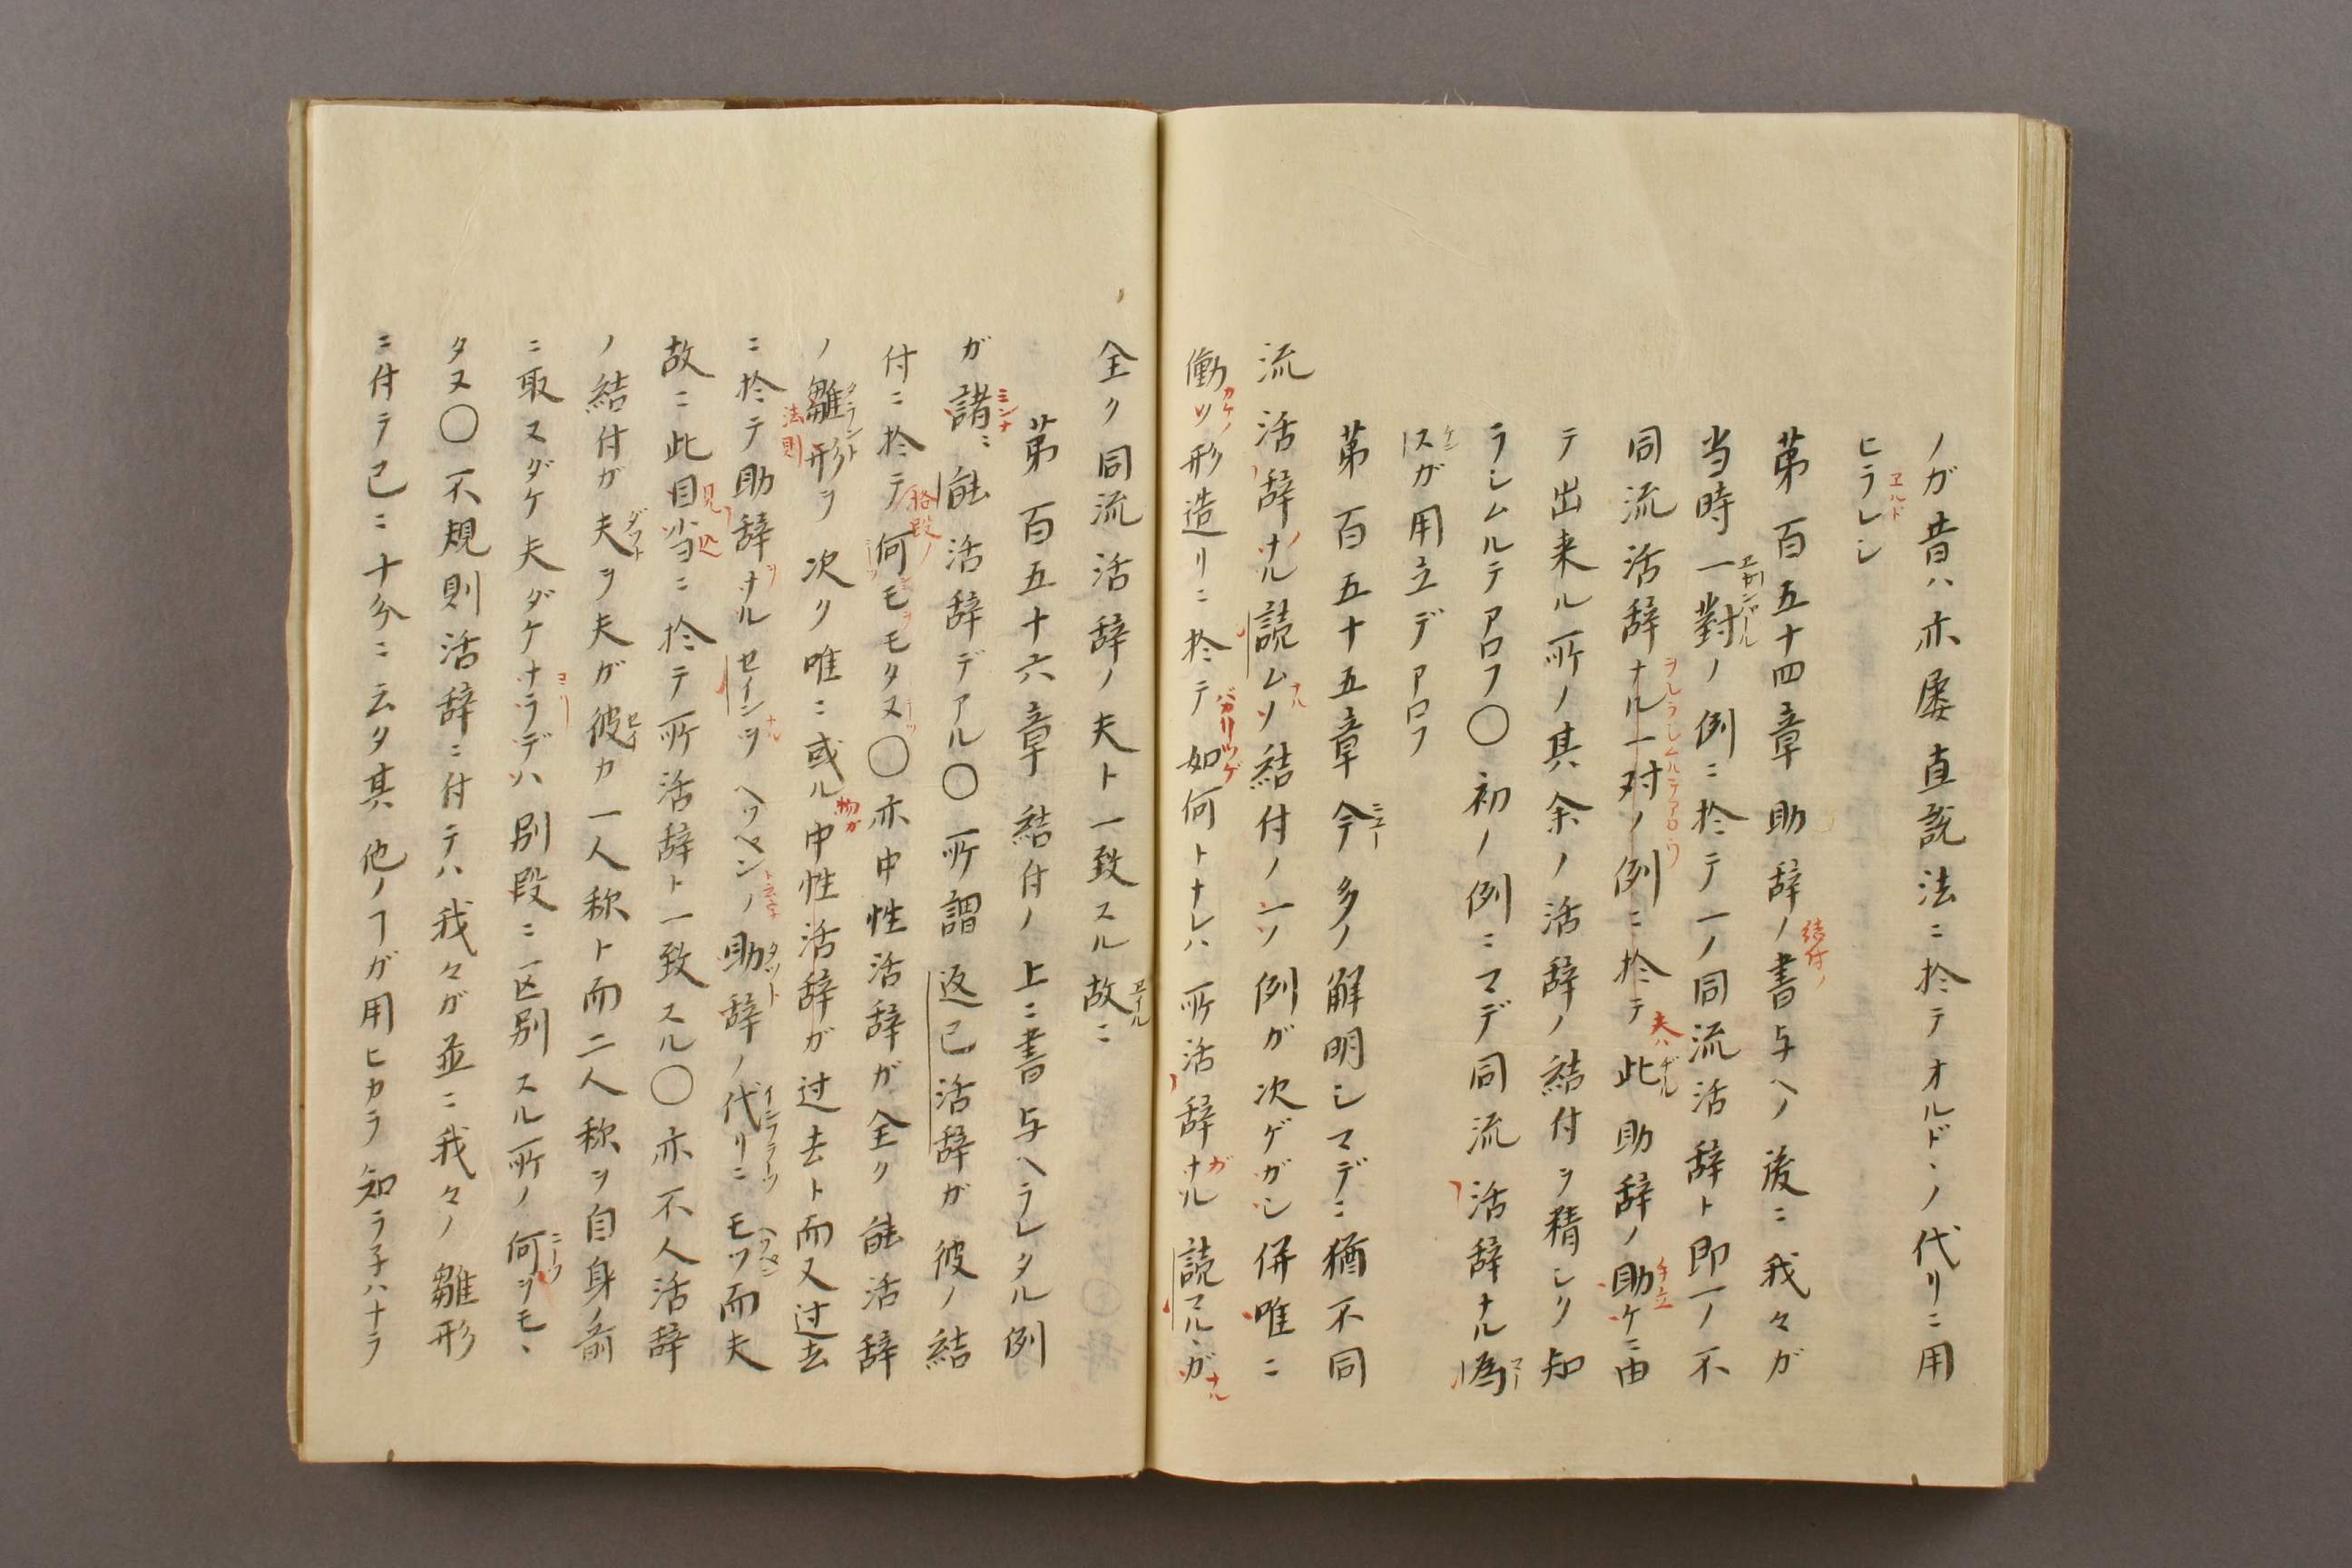 ノガ昔ハ亦屡直説法ニ於テオルド丶ノ代リニ用
ヒラレシ
第百五十四章 助辞ノ書与ヘノ後ニ我々ガ
当時一對ノ例ニ於テ一ノ同流活辞ト即一ノ不
同流活辞ナル一対ノ例ニ於テ此助辞ノ助ケニ由
テ出来ル所ノ其余ノ活辞ノ結付ヲ精シク知
ラシムルテアロフ〇初ノ例ニマデ同流活辞ナル為
スガ用立デアロフ
第百五十五章 今多ノ解明シマデニ猶不同
流活辞ナル読ムソ結付ノ一ツ例ガ次ゲガシ併唯ニ
働ソ形造リニ於テ如何トナレハ所活辞ナル読マル丶ガ
全ク同流活辞ノ夫ト一致スル故ニ
第百五十六章 結付ノ上ニ書与ヘラレタル例
ガ諸ニ能活辞デアル〇所謂返已活辞ガ彼ノ結
付ニ於テ何モモタヌ〇亦中性活辞ガ全ク能活辞
ノ雛形ヲ次ク唯ニ或ル中性活辞ガ过去ト而又过去
ニ於テ助辞ナルセインヲヘッベンノ助辞ノ代リニモツ而夫
故ニ此目当ニ於テ所活辞ト一致スル〇亦不人活辞
ノ結付ガ夫ヲ夫ガ彼カ一人称ト而二人称ヲ自身ノ前
ニ取ヌダケ夫ダケナラデハ別段ニ区別スル所ノ何ヲモ丶
タヌ〇不規則活辞ニ付テハ我々ガ並ニ我々ノ雛形
ニ付テ已ニ十分ニ云タ其他ノヿガ用ヒカラ知ラ子ハナラ